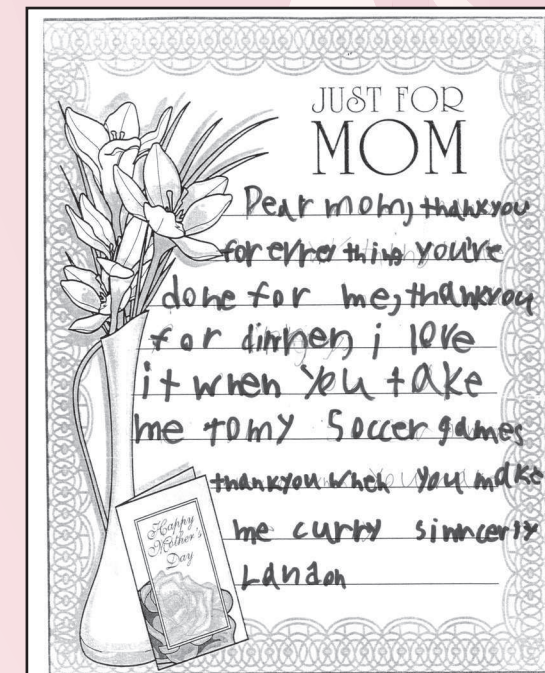 JUST FOR
MOM
Dear mom, thankyou
for evrey thing you've
done for me, thankyou
for dinner, i love
it when you take
me to my Soccer games
thankyou when you make
me curry sinncerly
Landon
Happy
Mother's
Day